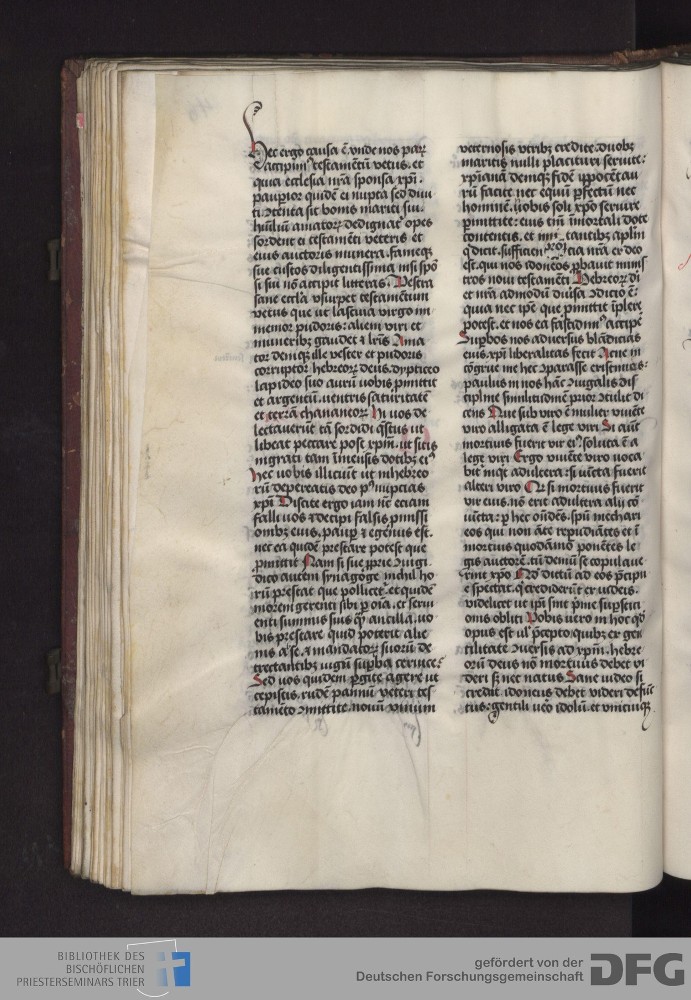 Hec ergo causa ē. vnde nos par
accipimꝰ testamētū vetus. et
quia ecclesia nr̄a sponsa xp̄i.
paupior quidē ei nupta sed diui
ti. ꝯtenta sit bonis mariti sui.
hūiliū amatoꝝ dedignat opes
sordent ei testamēti veteris et
eius auctoris munera. fameqꝫ
sue custos diligentissima nisi spō
si sui nō accipit litteras. Vestra
sane eccl̄a vsurpet testamentum
vetus que ut lasciua virgo im
memor pudoris: alieni viri et
muneribꝫ gaudet ⁊ lr̄is Ama
tor deniqꝫ ille vester et pudoris
corruptor hebreoꝝ deus. dypticeo
lapideo suo aurū uobis ꝓmittit
et argentū. uentris saturitatē
et terrā chananeoꝝ Hi uos de
lectauerūt tā sordidi q̄stus ut
libeat peccare post xp̄m. ut sitis
ingrati tam īmensis dotibꝫ eiꝰ
Hec uobis illiciūt ut in hebreo
rū depereatis deo pꝰ nuptias
xp̄i Discite ergo iam nc̄ etiam
falli uos ⁊ decipi falsis ꝓmissi
onibꝫ eius. paup ⁊ egenus est.
nec ea quidē prestare potest que
ꝓmittit Nam si sue ꝓprie ꝯiugi.
dico autem synagoge nichil ho
rū prestat que pollicet̄. et quidē
morem gerenti sibi ꝑ oīa. et serui
enti summis suis q̄ ancilla. uo
bis prestare quid poterit alie
nis a se. ⁊ mandatoꝝ suorū de
trectantibꝫ iugū supba ceruice:
Sed uos quidem ꝑgite agere ut
cepistis. rudē pannū veteri tes
tamēto ꝯmittite. nouū vinum
veternosis vtribꝫ credite. duobꝫ
maritis nulli placituri seruite:
xp̄ianā deniqꝫ fidē ypocētau
rū facite nec equū ꝑfectū nec
hominē. uobis soli xp̄o seruire
ꝑmittite: eius tm̄ īmortali dote
contentis. et imitantibꝫ apl̄m
q̄ dicit. sufficientia nr̄a ex deo
est. qui nos idoneos ꝓbauit minis
tros noui testamēti Hebreoꝝ di
et nr̄a admodū diuisa ꝯdicio ē:
quia nec ipē que ꝓmittit īplere
potest. et nos ea fastidimꝰ accipe
Supbos nos aduersus bladicias
eius. xp̄i liberalitas fecit Ac ne in
cōgrue me hec ꝯparasse existimes:
paulus in nos hāc ꝯiugalis dis
cipl̄ine similitudinē prior ꝯtulit di
cens Que sub viro ē mulier viuēte
viro alligata ē lege viri Si aut̄
mortuus fuerit vir eiꝰ. soluta ē a
lege viri Ergo viuēte viro uoca
bit̄ moeqꝫ adultera: si iūcta fuerit
alteri viro Qꝝ si mortuus fuerit
vir eius. nō erit adultera alij cō
iūcta: ꝑ hec oñdēs. spū mechari
eos qui non an̄ repudiātes et ī
mortuis quodāmō ponētes le
gis auctorē. tū demū se copulaue
rint xp̄o Qd̄ dictū ad eos ꝓcipu
e spectat. q̄ crediderūt ex iudeis.
videlicet ut ip̄i sint ꝓme supstici
onis obliti Vobis uero in hoc qd̄
opus est ul' ꝓcepto: quibꝫ ex gen
tilitate ꝯuersis ad xp̄m. hebre
orū deus nō mortuus debet vi
deri sꝫ nec natus Sane iudeo si
credit. idoneus debet videri defūc
tus: gentili uero idolū. et vnicuiqꝫ
BIBLIOTHEK DES
BISCHÖFLICHEN
PRIESTERSEMINARS TRIER
gefördert von der
Deutschen Forschungsgemeinschaft
DFG